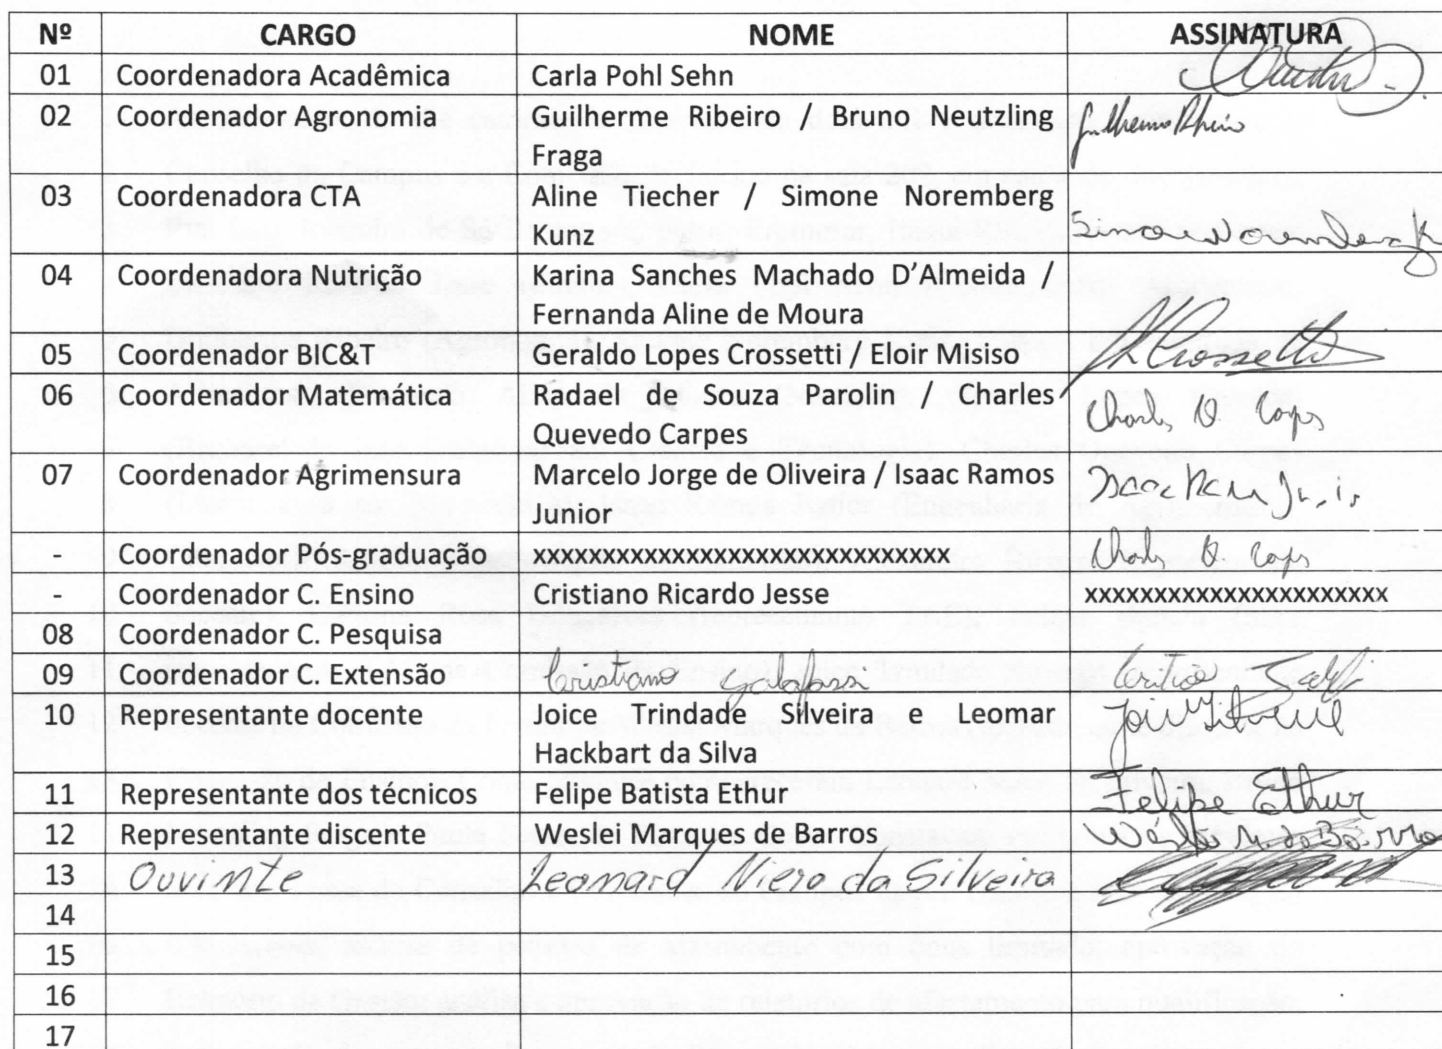 Nº CARGO NOME ASSINATURA
01 Coordenadora Acadêmica Carla Pohl Sehn
02 Coordenador Agronomia Guilherme Ribeiro / Bruno Neutzling Guilherme Ribeiro
Fraga
03 Coordenadora CTA Aline Tiecher / Simone Noremberg
Kunz Simone Noremberg K
04 Coordenadora Nutrição Karina Sanches Machado D’Almeida /
Fernanda Aline de Moura
05 Coordenador BIC&T Geraldo Lopes Crossetti / Eloir Misiso Crossetti
06 Coordenador Matemática Radael de Souza Parolin / Charles
Quevedo Carpes Charles Q. Carpes
07 Coordenador Agrimensura Marcelo Jorge de Oliveira / Isaac Ramos
Junior Isaac Ramos Junior
- Coordenador Pós-graduação xxxxxxxxxxxxxxxxxxxxxxxxxxxxxx Charles Q. Carpes
- Coordenador C. Ensino Cristiano Ricardo Jesse xxxxxxxxxxxxxxxxxxxxxx
08 Coordenador C. Pesquisa
09 Coordenador C. Extensão Cristiano Galafassi
10 Representante docente Joice Trindade Silveira e Leomar
Hackbart da Silva
11 Representante dos técnicos Felipe Batista Ethur Felipe Ethur
12 Representante discente Weslei Marques de Barros Weslei M. de Barros
13 Ouvinte Leonard Niero da Silveira
14
15
16
17